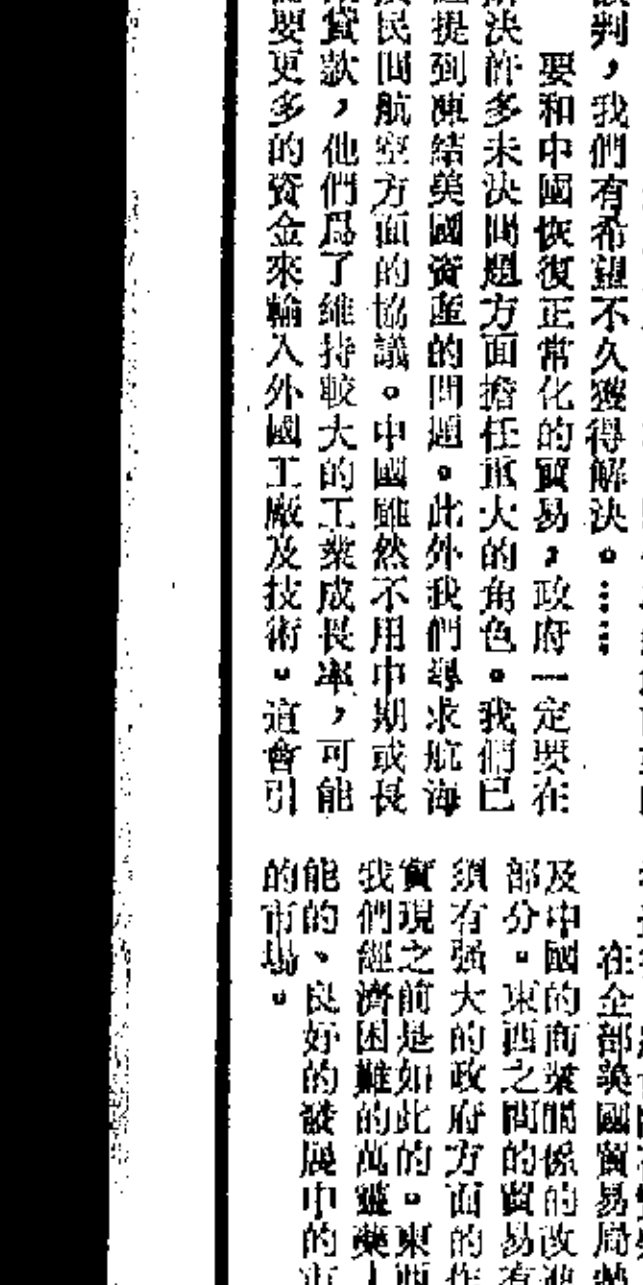 談判，我們有希望不久獲得解決。……
要和中國恢復正常化的貿易，政府一定要在
決許多未決問題方面擔任重大的角色。我們已
提到凍結美國資產的問題。此外我們尋求航海
民間航空方面的協議。中國雖然不用中期或長
貸款，他們爲了維持較大的工業成長率，可能
要更多的資金來輸入外國工廠及技術。這會引
在全部美國貿易局勢
及中國的商業關係的改
部分。東西之間的貿易有
須有强大的政府方面的作
實現之前是如此的。東西
我們經濟困難的萬靈藥
能的、良好的發展中的市
的市場。